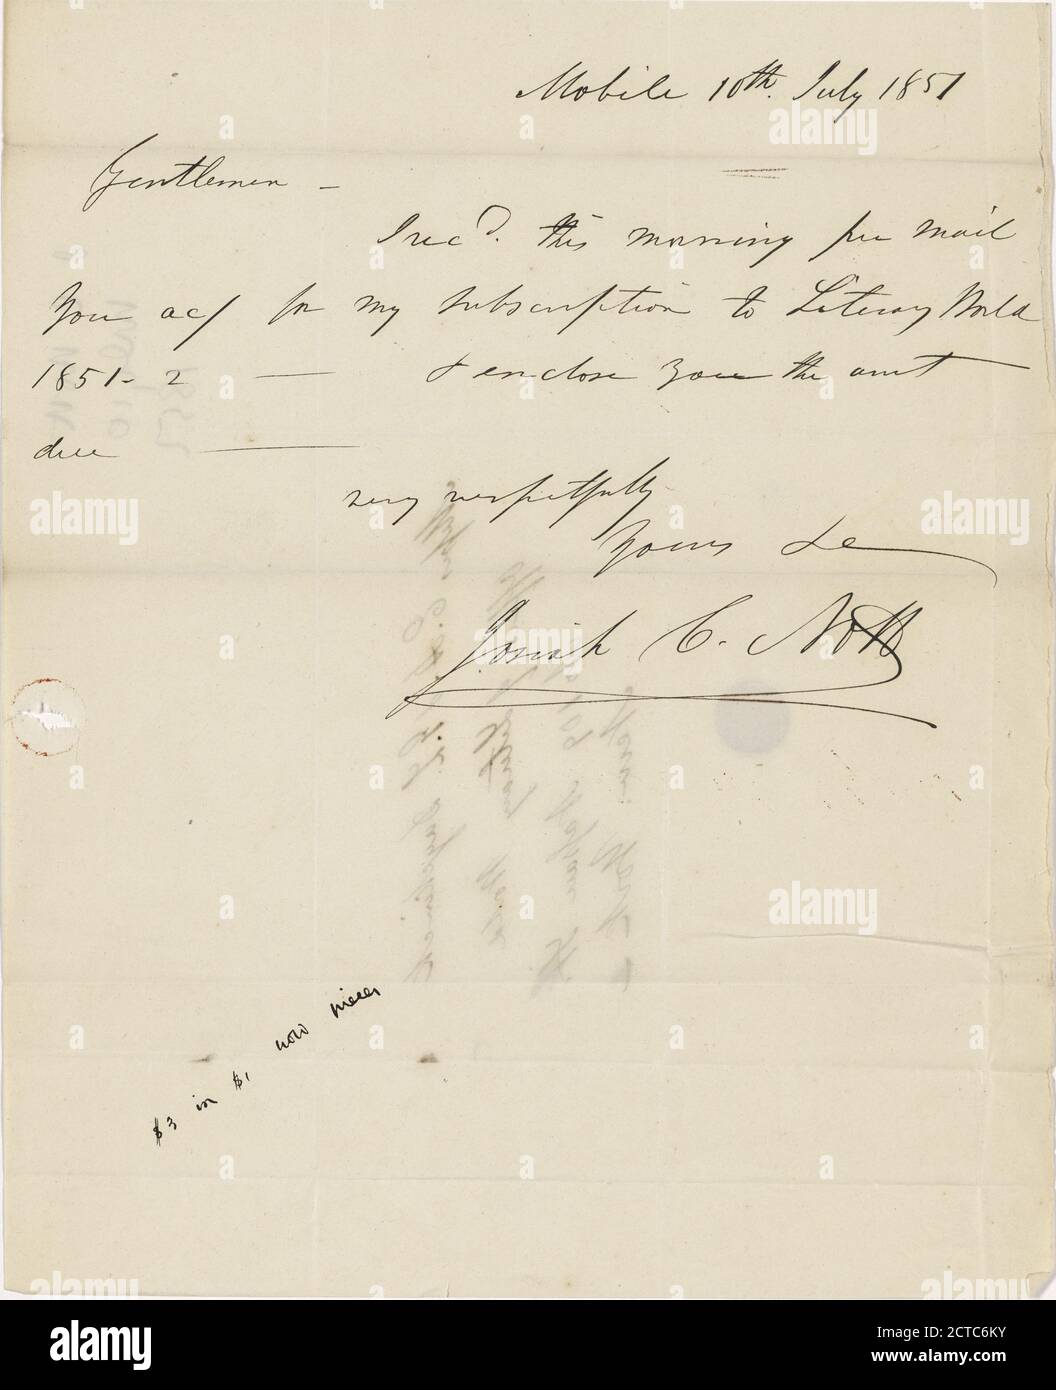 Mobile 10th. July 1851
Gentlemen -
I recd. this morning per mail
your ac/ for my subscription to Literary World
1851-2 — & enclose you the amt
due —
very respectfully
Yours &c
Josiah C. Nott
$3 in $1 now pieces
alamy
Image ID: 2CTC6KY
www.alamy.com